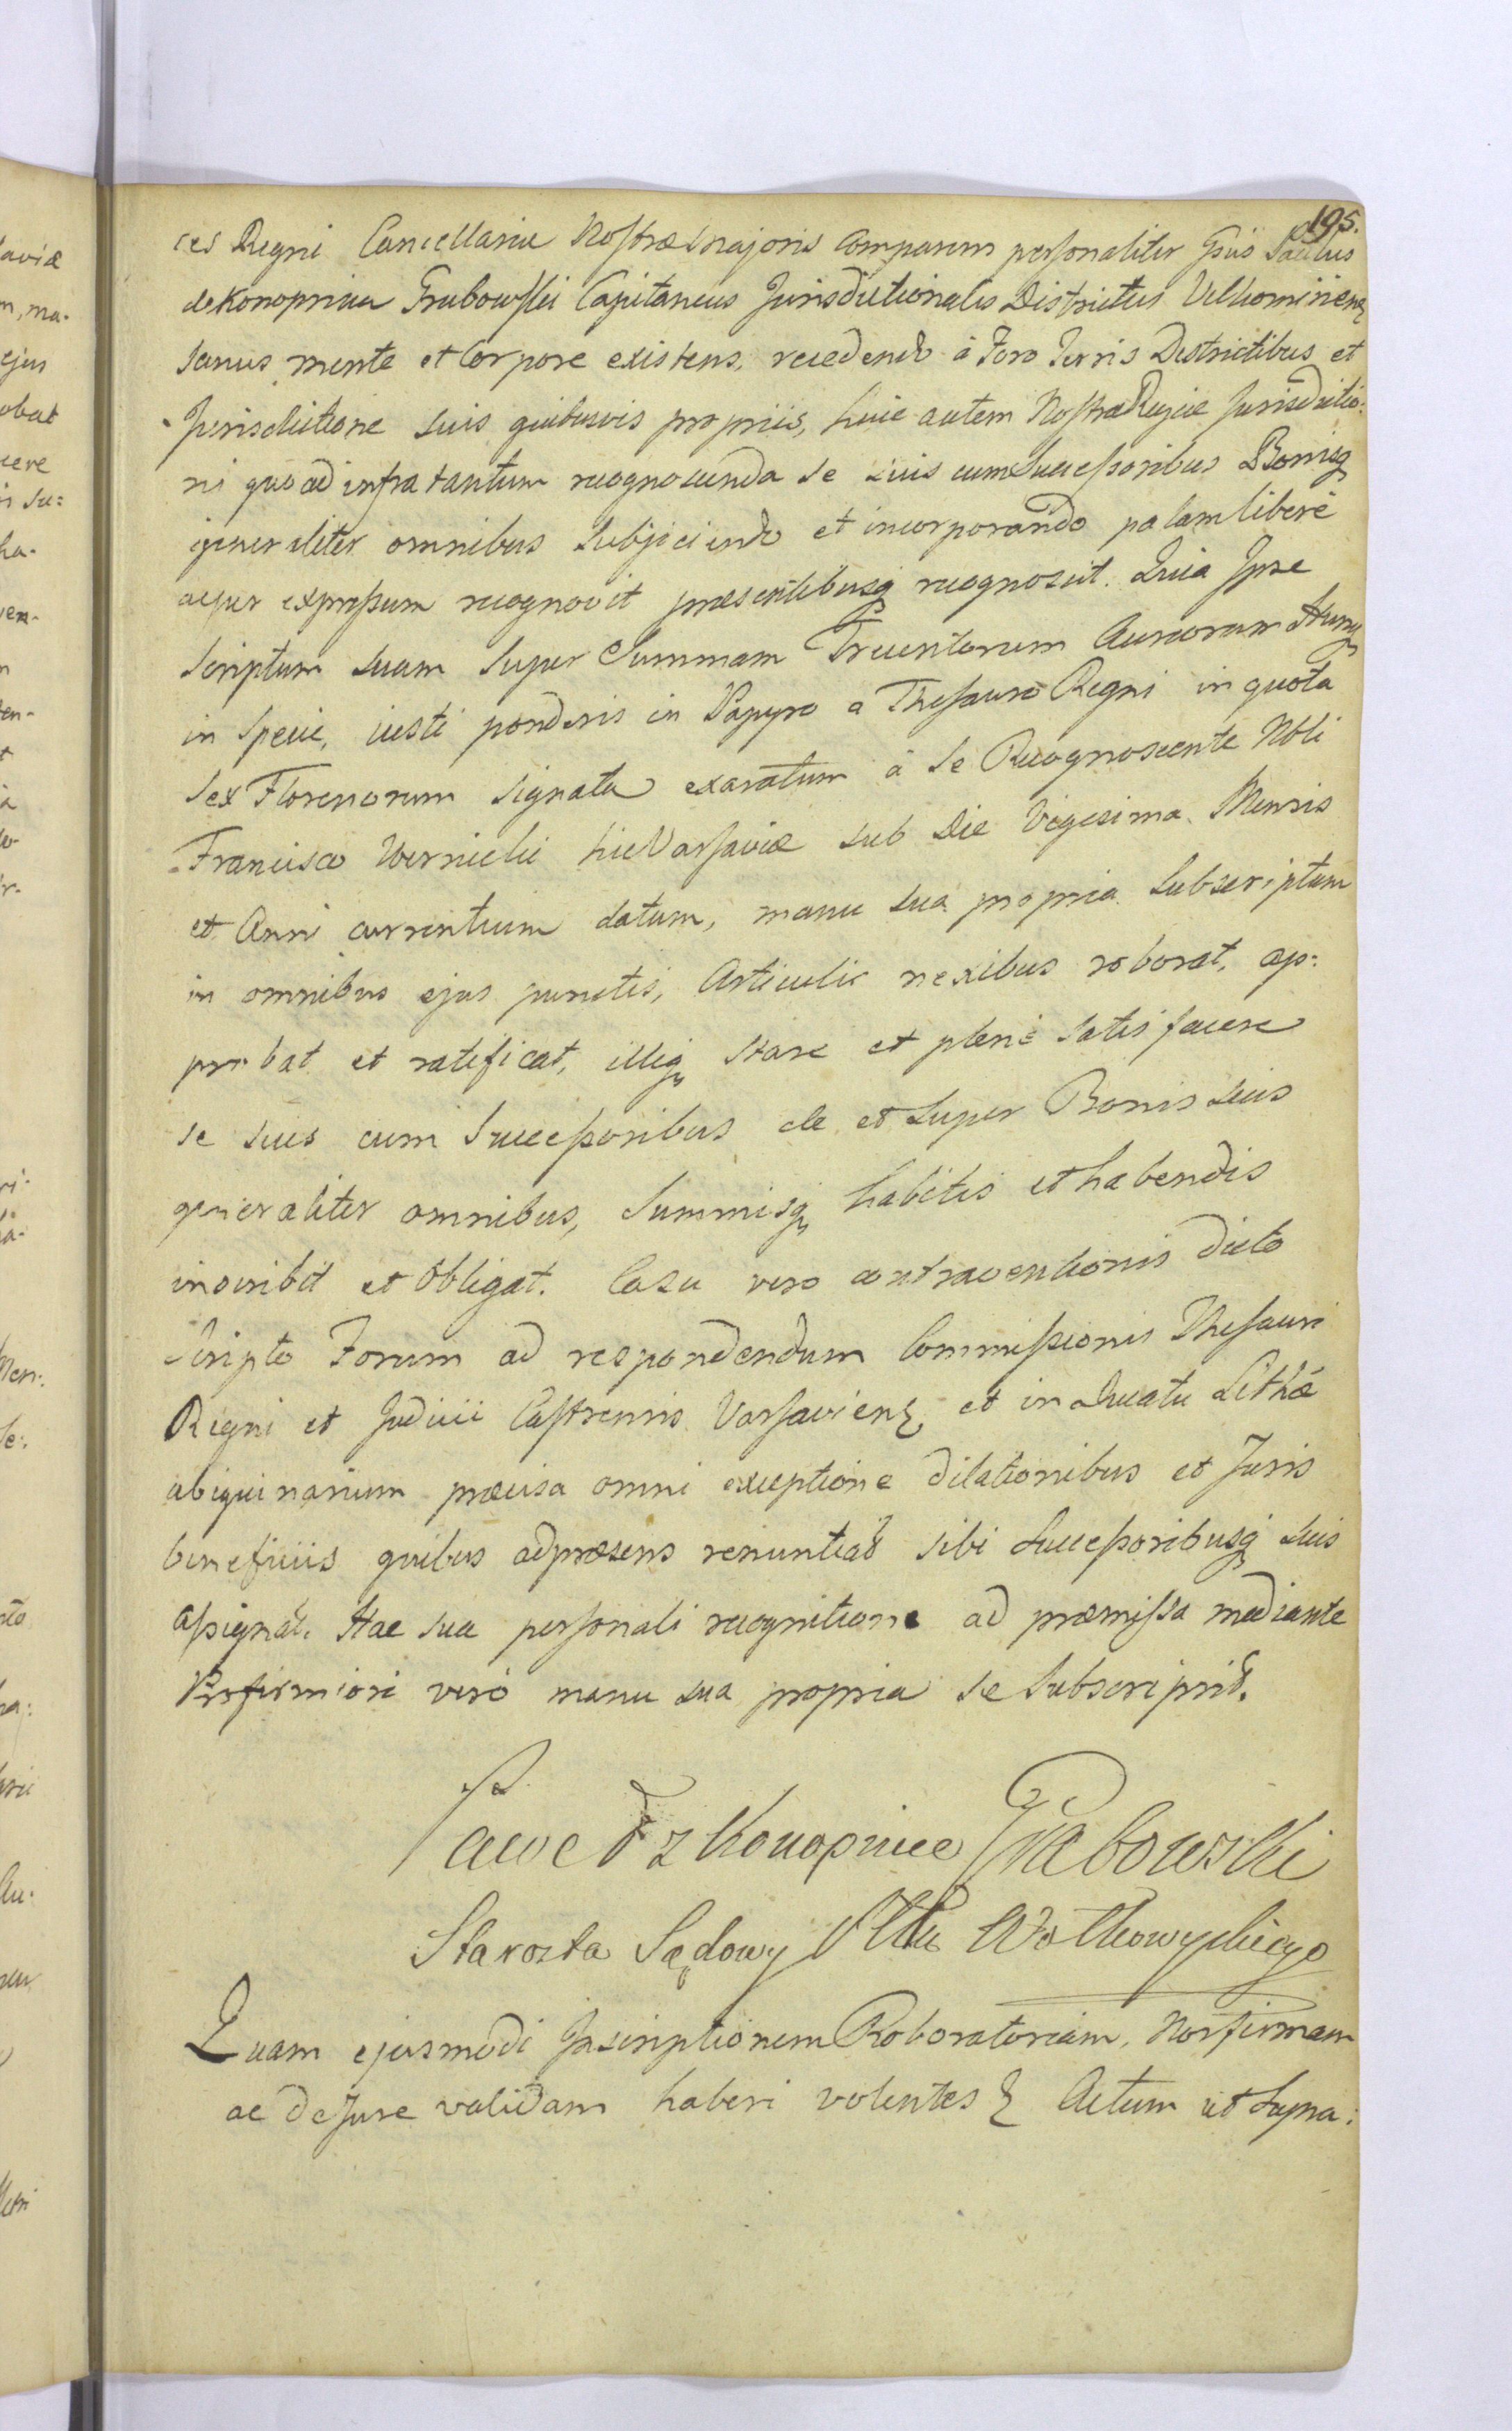 195.
ces Regni Cancellariae Nostrae Majoris Comparens personaliter Gsus Paulus
de Konopnica Grabowski Capitaneus Jurisdictionalis Districtus Vilkomiriens
sanus mente et Corpore existens, recedendo à Foro Terris Districtibus et
Jurisdictione suis quibusvis propriis, huic autem Nostrae Regiae Jurisdictio:
ni quo ad infra tantum recognoscenda se suis cum Successoribus Bonisq
generaliter omnibus Subjiciendo et incorporando palam liberè
ac per expressum recognovit praesentibusq recognoscit. Quia Ipse
Scriptum suum Super Summam Trecentorum Aureorum Hung
in Specie, iusti ponderis in Papyro a Thesauro Regni in quota
sex Florenorum signata exaratum à se Recognoscente Nbli
Francisco Wernicki hic Varsaviae sub Die Vigesima Mensis
et Anni currentium datum, manu sua propria Subscriptum
in omnibus ejus punctis, Articulis nexibus roborat, ap:
probat et ratificat, illiq stare et plenè satisfacere
se suis cum Successoribus de et Super Bonis suis
generaliter omnibus, Summisq habitis et habendis
inscribit et obligat. Casu vero contraventionis dicto
Scripto Forum ad respondendum Commissionis Thesauri
Regni et Judicii Castrensis Varsaviens et in Ducatu Lithae
ubiquinarium praecisa omni exceptione dilationibus et Juris
beneficiis quibus ad praesens renuntiat sibi Successoribusq suis
assignat. Hac sua personali recognitione ad praemissa mediante
Pro firmiori verò manu sua propria se Subscripsit.
Paweł z Konopnice Grabowski
Starosta Sądowy Pttu Wołkowyskiego
Quam ejusmodi Inscriptionem Roboratoriam, Nos firmam
ac de Jure validam haberi volentes & Actum ut Supra: